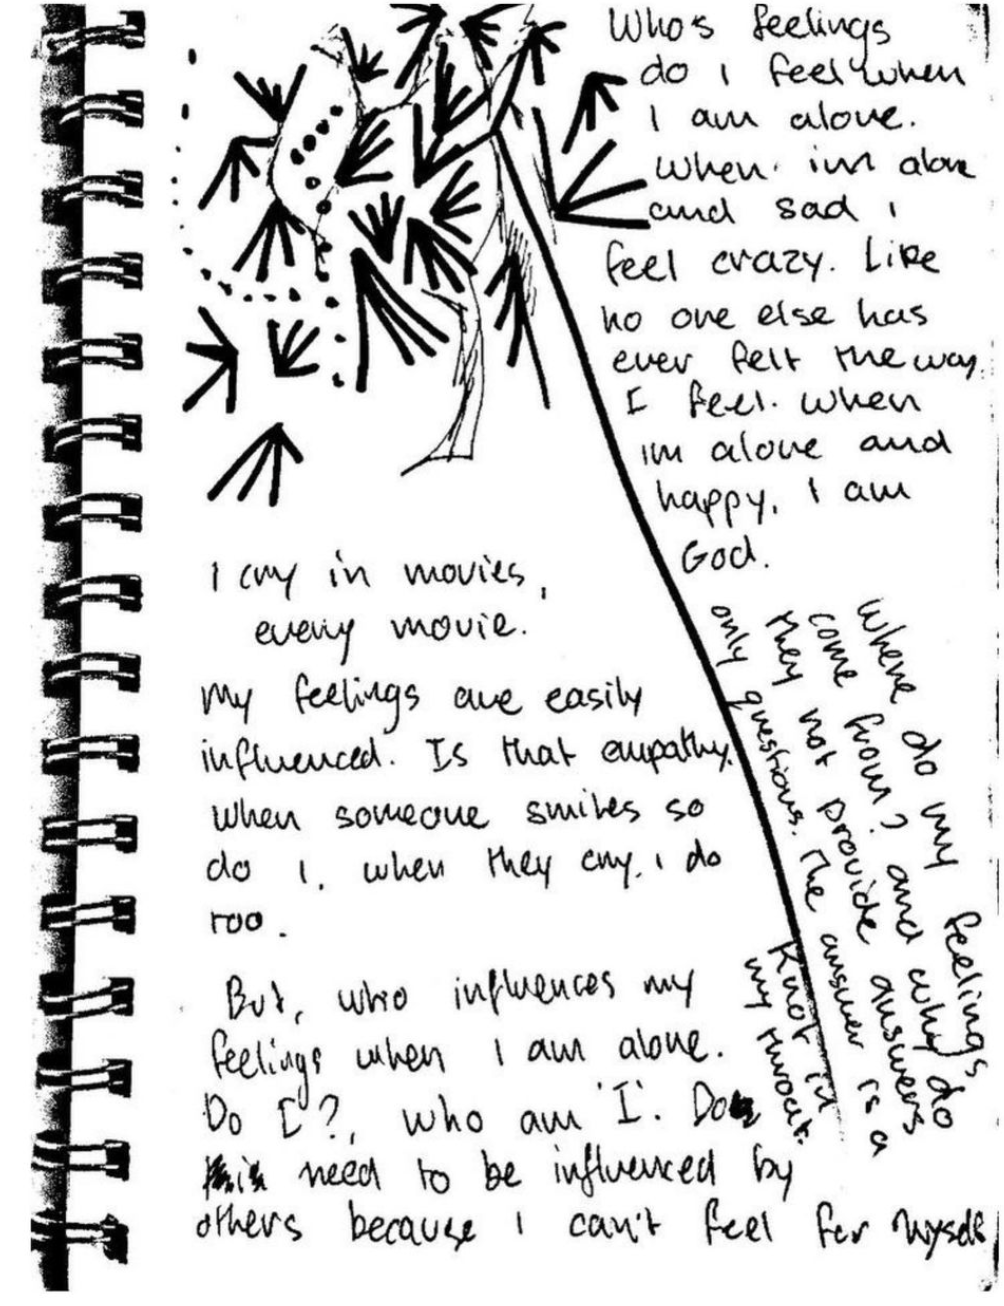 I cry in movies,
every movie.
My feelings are easily
influenced. Is that empathy.
When someone smiles so
do I. when they cry. i do
too.
But, who influences my
feelings when I am alone.
Do I?, who am 'I'. Do
need to be influenced by
others because I can't feel for myself
Who's feelings
do i feel when
I am alone.
When im alone
and sad i
feel crazy. Like
no one else has
ever felt the way.
I feel. when
im alone and
happy, I am
God.
Where do my feelings
come from? and why do
they not provide answers
only questions. The answer is a
Knot in
my throat.